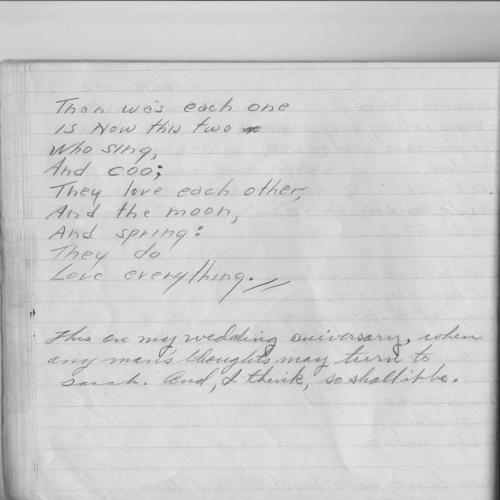 Than was each one
is Now this two
who sing,
And coo;
They love each other,
And the moon,
And spring:
They do
Love everything.
This on my wedding aniversary, when
any man's thoughts may turn to
such. And, I think, so shall it be.